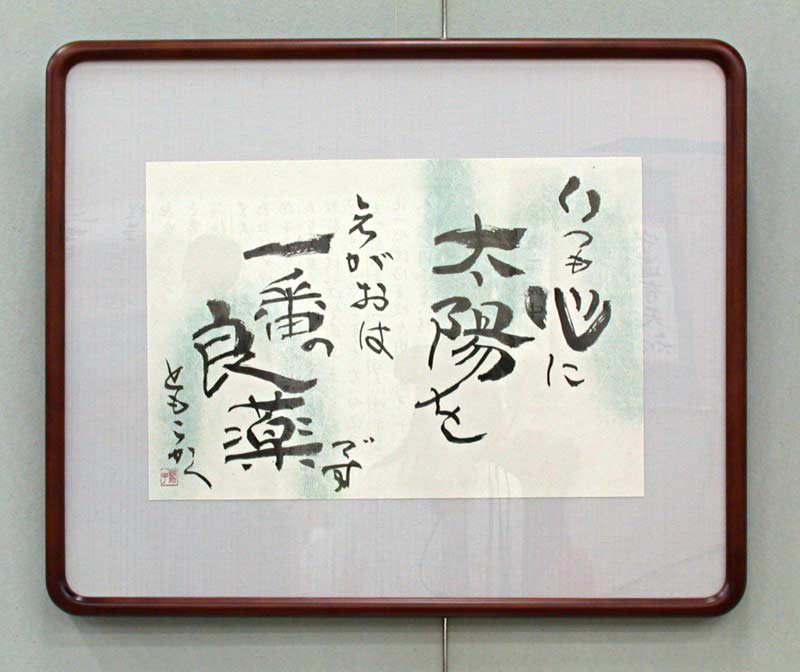 いつも心に
太陽を
えがおは
一番の
良薬です
ともこかく